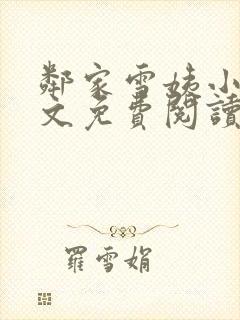 鄰家雪姨小
文免費閱讀
羅雪娟